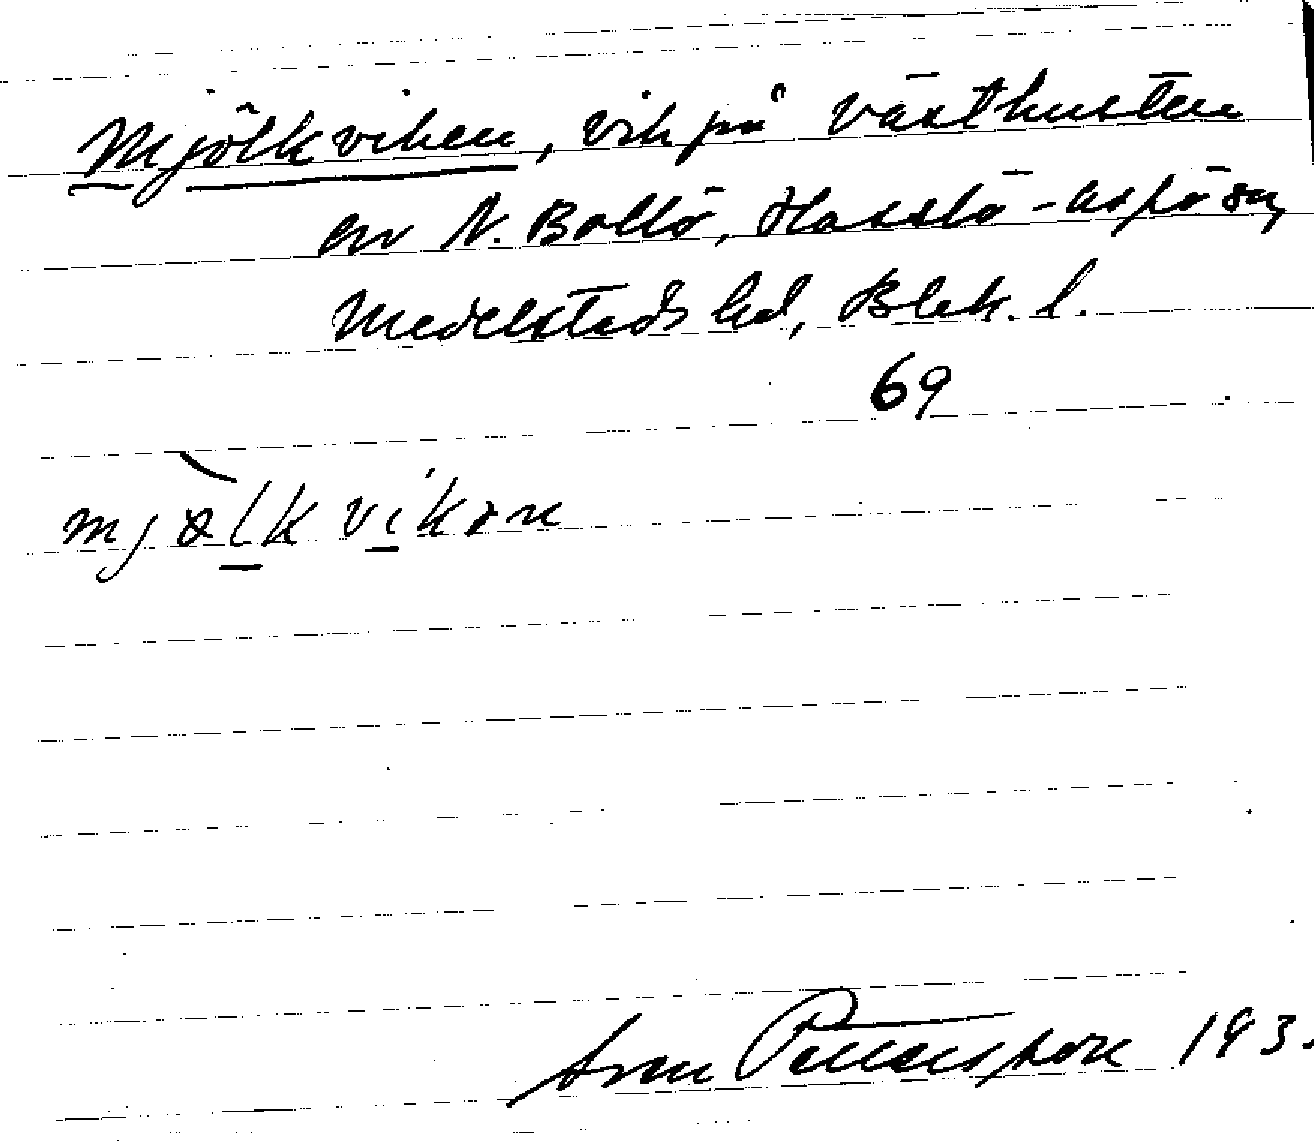 Mjölkviken, vik på västkusten
av N. Bollö, Hasslö-Aspö sn,
Medelstads hd, Blek. l.
69
mjölkvikən
Pettersson 193